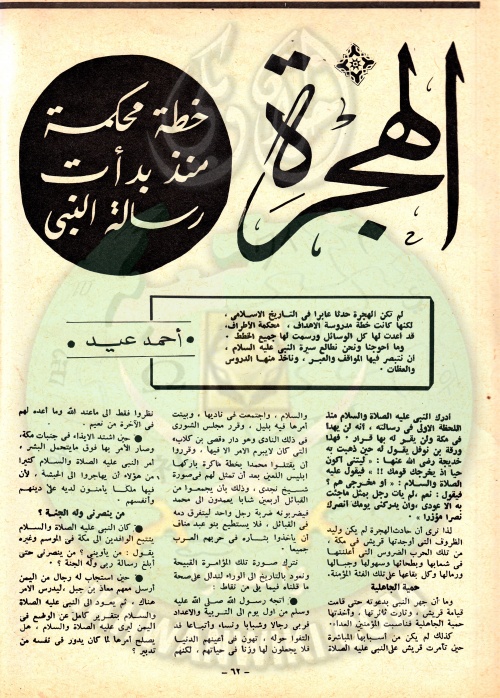 الهجرة
خطة محكمة
منذ بدأت
رسالة النبى
لم تكن الهجرة حدثا عابرا فى التاريخ الاسلامى ،
لكنها كانت خطة مدروسة الاهداف ، محكمة الأطراف،
قد اعدت لها كل الوسائل ورسمت لها جميع الخطط ·
وما أحوجنا ونحن نطالع سيرة النبى عليه السلام ،
ان نتبصر فيها المواقف والعبر ، ونأخذ منها الدروس
والعظات ·
• أحمد عيد •
أدرك النبى عليه الصلاة والسلام منذ
اللحظة الاولى فى رسالته ، أنه لن يهدأ
فى مكة ولن يقر له بها قرار · فهذا
ورقة بن نوفل يقول له حين ذهبت به
خديجة رضى الله عنها : « ليتنى أكون
حيا اذ يخرجك قومك !! » فيقول عليه
الصلاة والسلام : « أو مخرجى هم ؟
فيقول : نعم ،لم يات رجل بمثل ماجئت
به الا عودى ،وان يدركنى يومك أنصرك
نصرا مؤزرا » ·
لذا نرى أن حادث الهجرة لم يكن وليد
الظروف التى أوجدتها قريش فى مكة ،
من تلك الحرب الضروس التى أعلنتها
فى شعابها وبطحائها وسهولها وجبالها
ورمالها وكل بقاعها على تلك الفئة المؤمنة·
حمية الجاهلية
وما أن جهر النبى بدعوته حتى قامت
قيامة قريش ، وثارت ثائرتها ، وأخذتها
حمية الجاهلية فناصبت المؤمنين العداء·
كذلك لم يكن من أسبابها المباشرة
حين تآمرت قريش على النبى عليه الصلاة
والسلام ، واجتمعت فى ناديها ، وبيتت
أمرها فيه بليل ، وقرر مجلس الشورى
فى ذلك النادى وهو دار قصى بن كلاب،
التى كان لايبرم الامر الا فيها ، وقرروا
أن يقتلوا محمدا بخطة ماكرة باركها
ابليس اللعين بعد أن تمثل لهم فى صورة
شيخ نجدى ، وذلك بأن يجمعوا من
القبائل أربعين شابا يعمدون الى محمد
فيضربونه ضربة رجل واحد ليتفرق دمه
فى القبائل ، فلا يستطيع بنو عبد مناف
أن يأخذوا بثأره فى حربهم العرب
جميعا ·
نترك صورة تلك المؤامرة القبيحة
ونعود بالتاريخ الى الوراء لندلل على صحة
ما قلناه، فيما يلى من نقاط :
● اتجه رسول الله صلى الله عليه
وسلم من أول يوم الى التربية والاعداد
فربى رجالا وشبابا ونساء وأتباعا قد
التفوا حوله ، تهون فى أعينهم الدنيا
فلا يجعلون لها وزنا فى حياتهم ، لكنهم
نظروا فقط الى ماعند الله وما أعده لهم
فى الآخرة من نعيم ·
● حين اشتد الايذاء فى جنبات مكة،
وصار الامر بها فوق مايتحمل البشر ،
أمر النبى عليه الصلاة والسلام كثيرا
من هؤلاء أن يهاجروا الى الحبشة ، لأن
فيها ملكا يأمنون لديه على دينهم
وأنفسهم ·
من ينصرنى وله الجنة ؟
● كان النبى عليه الصلاة والسلام
يتتبع الوافدين الى مكة فى الموسم وغيره
يقول : من يأوينى ؟ من ينصرنى حتى
أبلغ رسالة ربى وله الجنة ؟ ·
● حين استجاب له رجال من اليمن
أرسل معهم معاذ بن جبل ،ليدرس الامر
هناك ، ثم يعود الى النبى عليه الصلاة
والسلام بتقرير كامل عن الوضع فى
اليمن ليرى عليه الصلاة والسلام ، هل
يصلح أمرها لما كان يدور فى نفسه من
تدبير ؟
- ٦٢ -